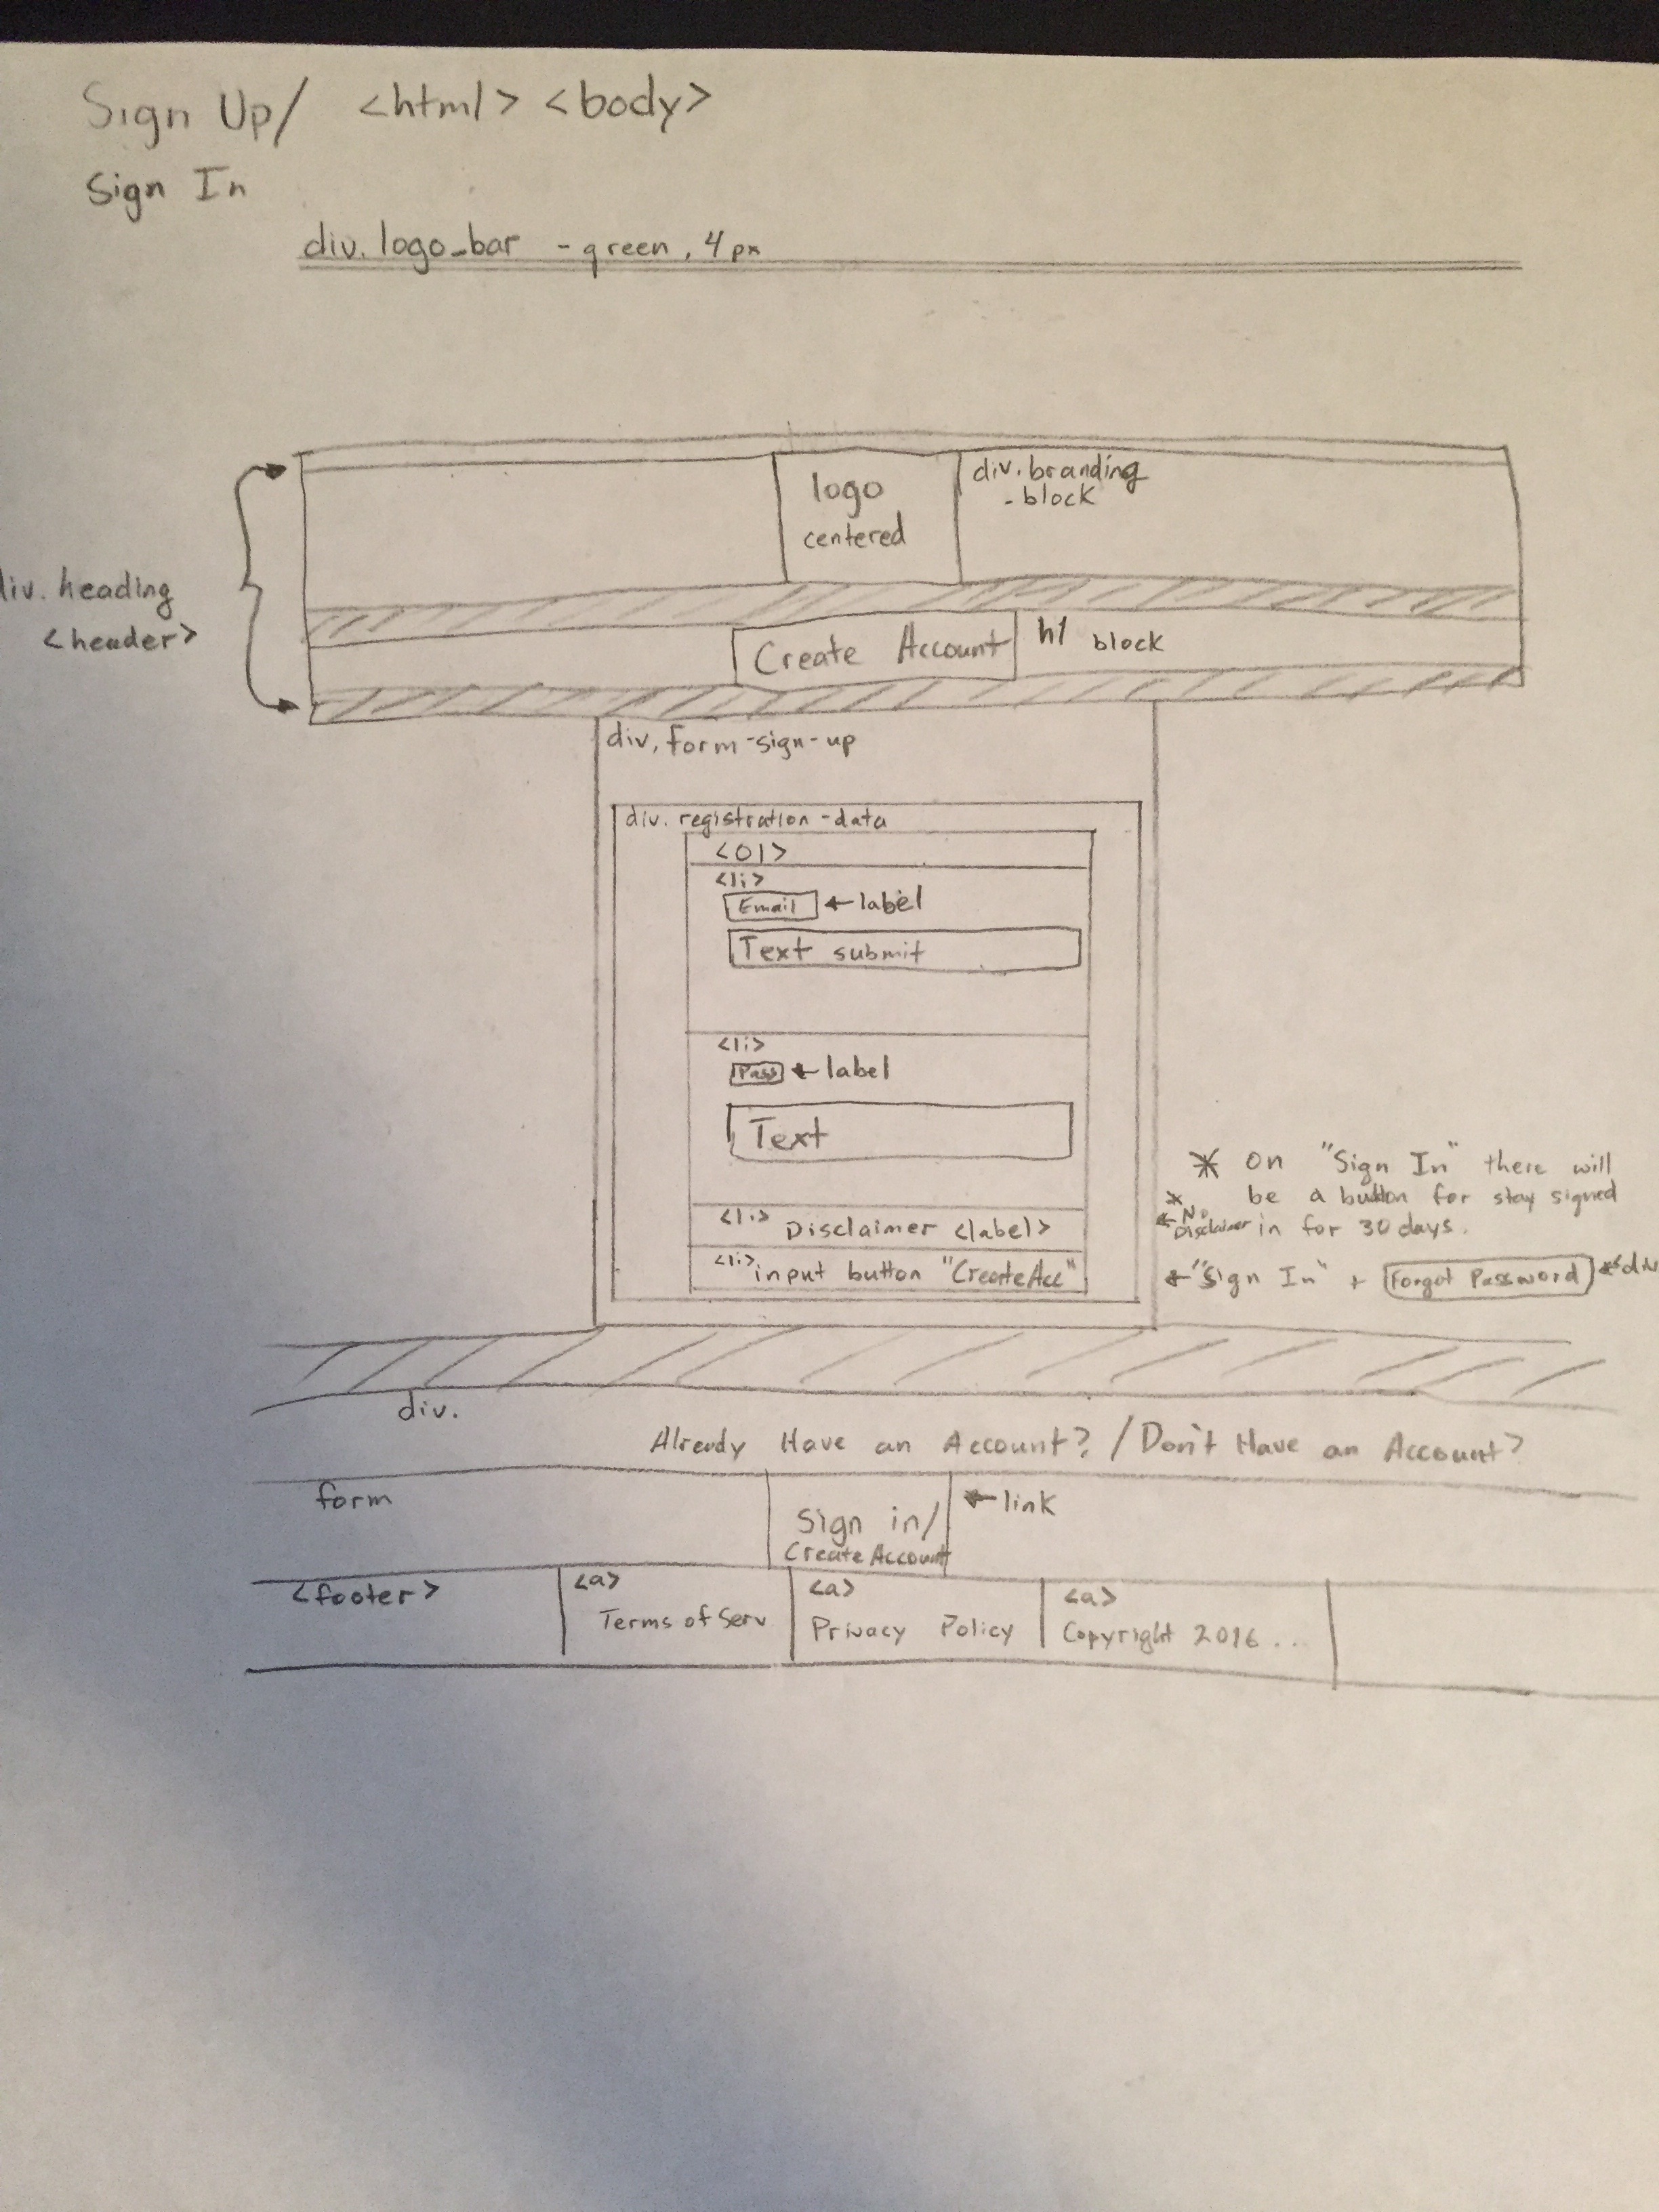 Sign Up/ <html> <body>
Sign In
div. logo_bar - green, 4px
logo
centered
div. branding
- block
div. heading
<header>
Create Account
h1 block
div. form-sign-up
div. registration-data
<ol>
<li>
Email ← label
Text submit
<li>
Pass ← label
Text
<li> Disclaimer <label>
<li> input button "CreateAcc"
* on "Sign In" there will
be a button for stay signed
in for 30 days.
* No
← Disclaimer
← "Sign In" + Forgot Password ← div
div.
Already Have an Account? / Don't Have an Account?
form
Sign in/
Create Account
← link
<footer>
<a>
Terms of Serv
<a>
Privacy Policy
<a>
Copyright 2016 ...